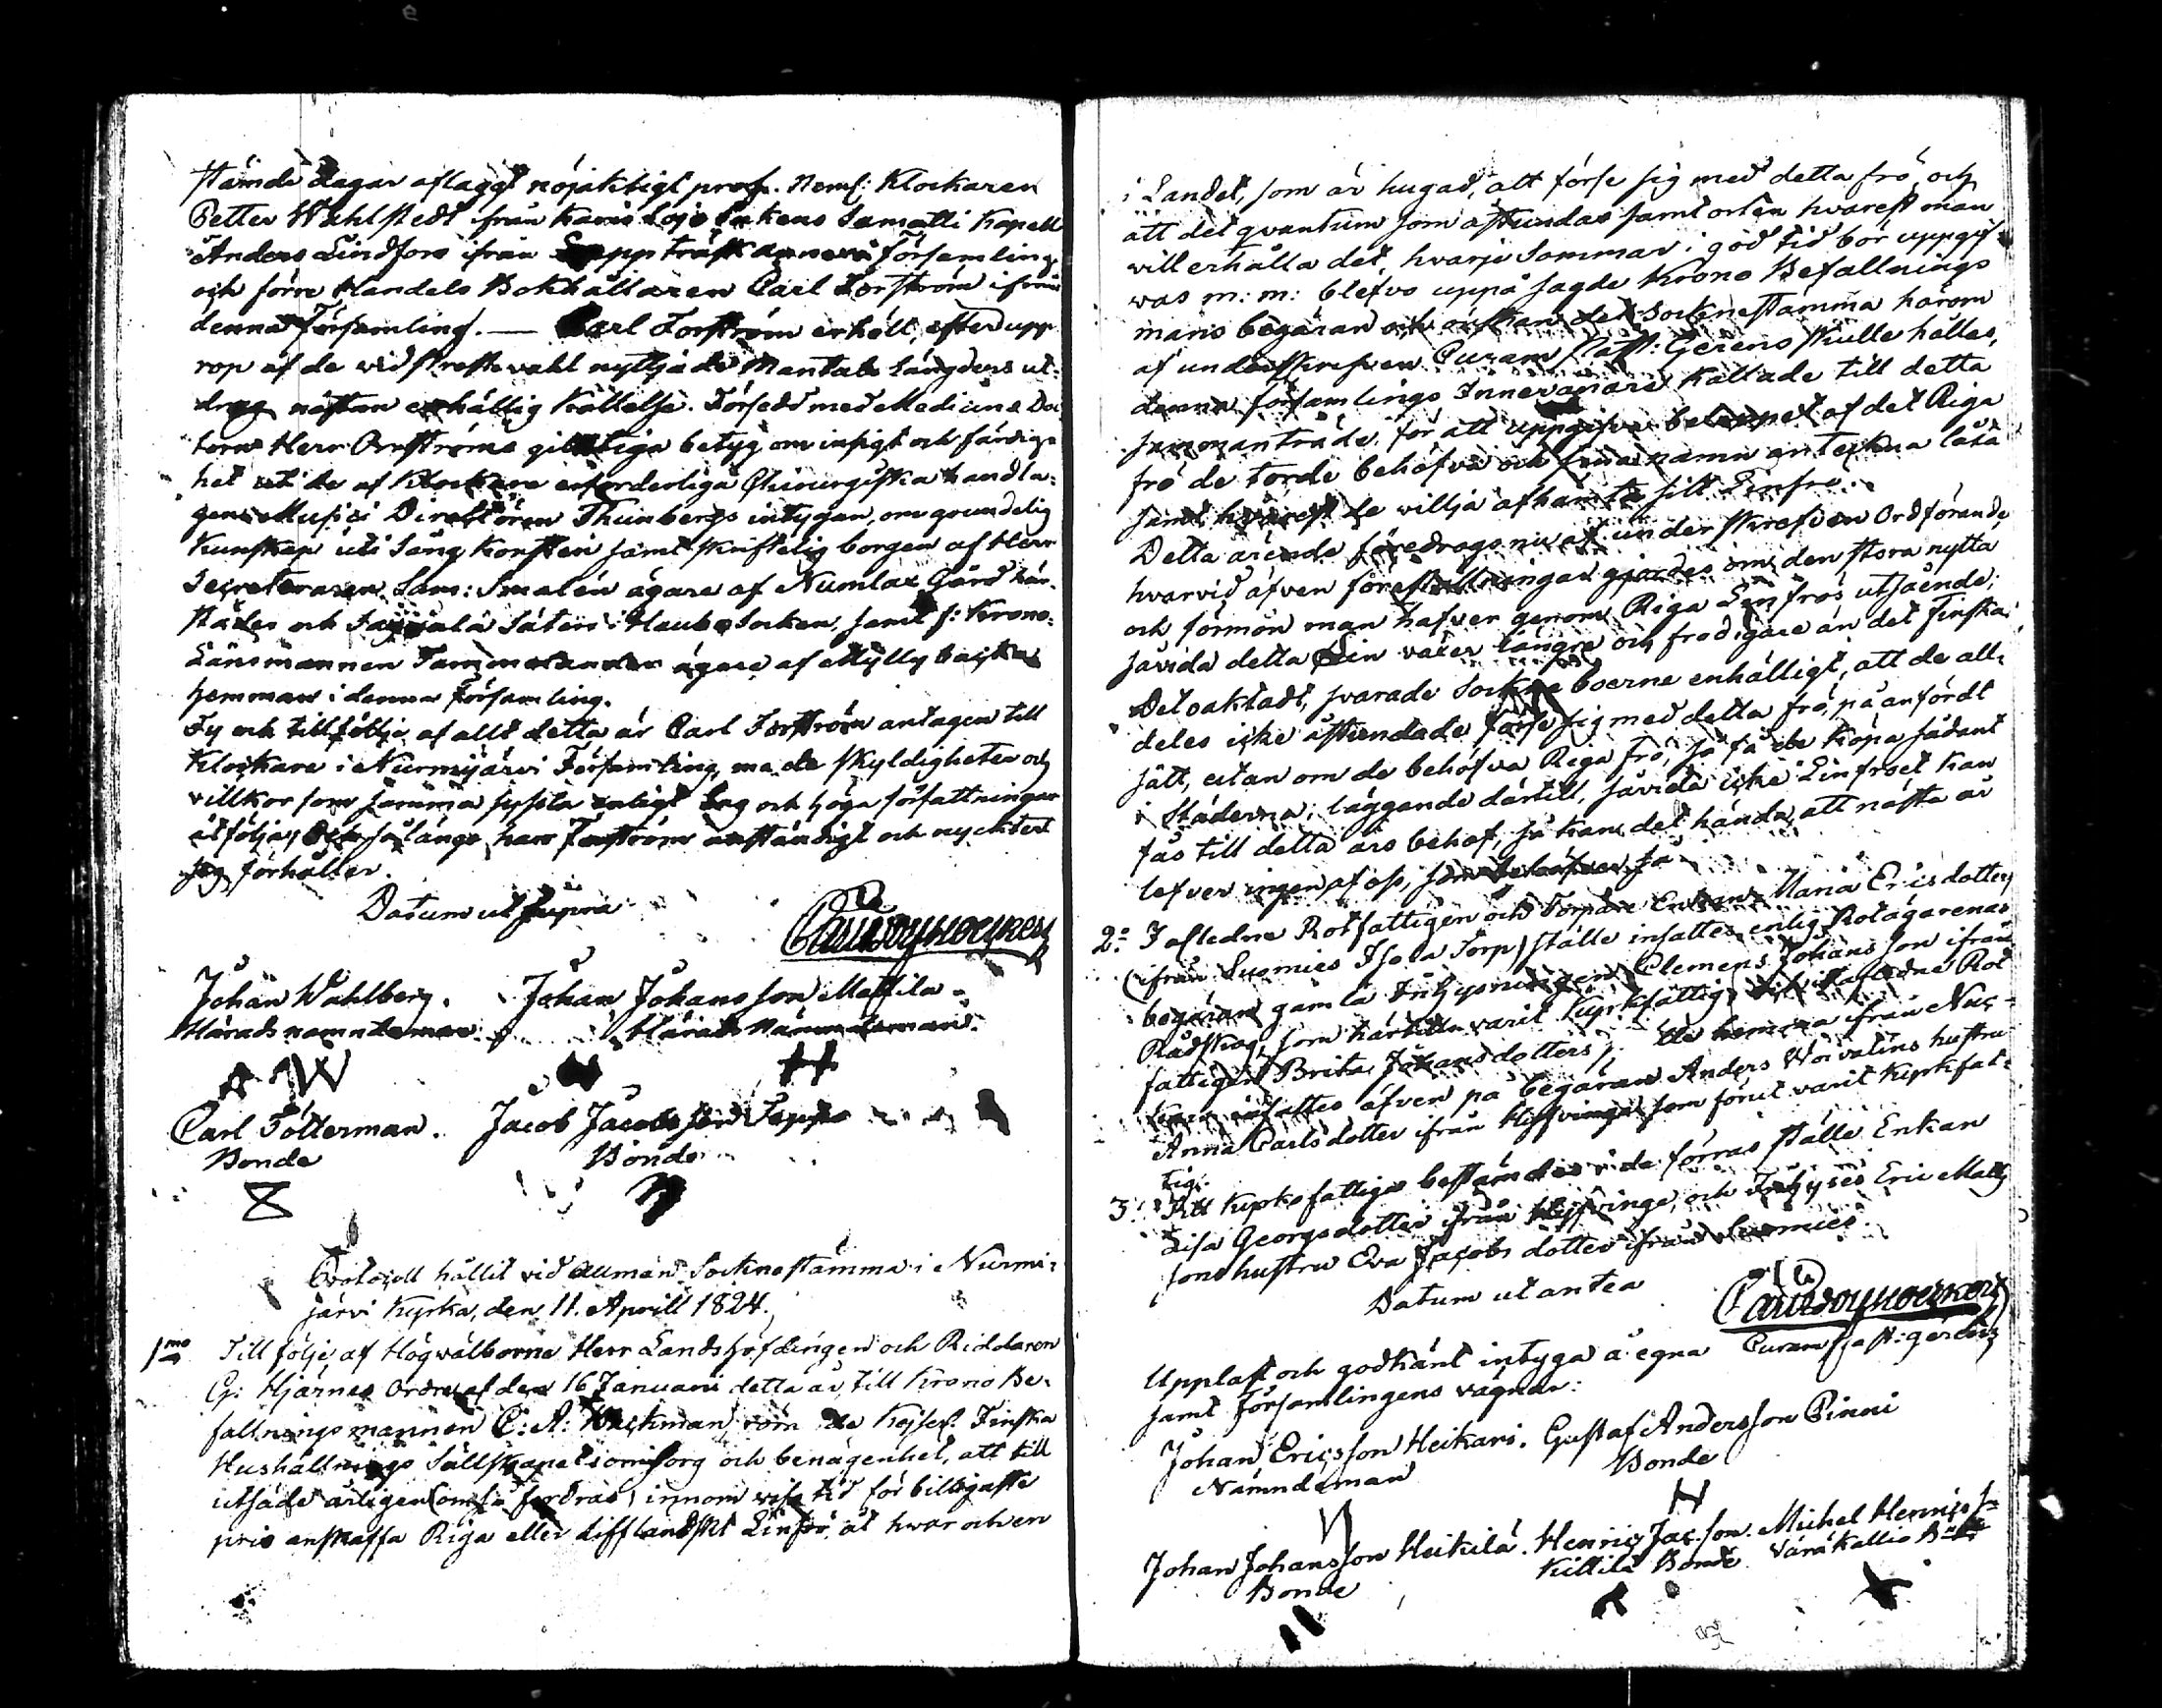 stämde dagar aflaggt nöjaktigt prof. Neml: Klockaren
Petter Wahlstedt ifrån Karis Lojo Sokens Samatti Kapell
Anders Lindfors ifrån träsk församling
och förre Handels Bokhållaren Carl Forström ifrån
denna Församling. — Carl Forström erhölt, efter upp
rop af de vid Prestevahl nyttjade Mantals Längders ut-
drag nästan enhällig kallelse. Försedd med Medicine Doc
torns Herr giltiga betyg om insigt och färdig-
het ut de af Klockare erforderliga Chirurgiska handla-
gen Musici Directören Thunbergs intygan, om grundelig
Kunskap uti Sång konsten samt skriftelig borgen af Herr
Secreteraren Sam: Smalén ägare af Numlax Gård här-
städes och Säteri i Hauho Socken, samt f: Krono-
Länsmannen ägare af Mylly
hemman i denna Församling.
Ty och tillfölje af allt detta är Carl Forström antagen till
Klockare i Nurmijärvi Församling, me de skyldigheter och
villkor som samma syssla enligt Lag och höga författningar
åtfölja, så länge han Forström anständigt och nycktert
sig förhåller.
Datum ut supra
Johan Wahlberg. Johan Johansson Mattila
Härads nämndeman. Härads Nämndeman.
Carl Fölterman. Jacob Jacobsson Seppä
Bonde Bonde
Protocoll hållit vid allmän Sockne stämma i Nurmi-
järvi Kyrka, den 11. Aprill 1824.
1mo Till följe af Högvälborne Herr Landshöfdingen och Riddaren
G: Hjärnes Ordre af den 16 Januari detta år, till Krono Be-
fallningsmannen C: A: om de Kejserl. Finska
Hushållnings Sällskapets omsorg och benägenhet, att till
utsäde årligen (om så fordras) innom viss tid för billigaste
pris anskaffa Riga eller liffländskt Linfrö, åt hvar och en
i Landet, som är hugad, att förse sig med detta frö, och
att det qvantum som åstundas samt orten hvarest man
vill erhålla det, hvarje Sommar i god tid bör uppgif-
vas m: m: blefvo uppå sagde Krono Befallnings
mans begäran och det Sockne stämma härom
af underskrefven Curam Past: Gerens skulle hållas,
denna församlings Innevånare kallade till detta
sammanträde, för att uppgifva beloppet af det Riga
frö de torde behöfva och sina namn anteckna låta
samt hvarest de villja afhämta sitt Linfrö.
Detta ärende föredrogs nu af underskrefven Ordförande
hvarvid äfven föreställningar gjordes om den stora nytta
och förmon man hafver genom Riga Linfrös utsående,
såvida detta Lin växer längre och frodigare än det finska.
Det oaktadt, svarade Sockneboerne enhälligt, att de all-
deles icke åstundade förse sig med detta frö, på anfördt
sätt, utan om de behöfva Riga frö, så få de köpa sådant
i Städerna; läggande därtill, såvida icke Linfröet kan
fås till detta års behof, så kan det hända, att nästa år
lefver ingen af oss, som behöfver få
2o I afledne Rotfattigen och Torpare Enkan Maria Ericsdotters
(ifrån Luomies Isola Torp) ställe insattes enlig Rotägarenas
begäran gamla Inhysningen Clemens Johansson ifrån
som härtills varit Kyrkfattig, afledne Rot
fattigen Brita Johansdotters, hemma ifrån
insattes äfven på begäran Anders hustru
Anna Carlsdotter ifrån Hyfvinge som förut varit Kyrkfat-
tig.
3o Till Kyrkofattige bestämdes i de förras ställe Enkan
Lisa Georgsdotter ifrån Hyfvinge, och Inhyses Eric Matts
sons hustru Eva Jacobsdotter ifrån Luomies.
Datum ut antea
Curam past: gerens
Uppläst och godkänt intyga å egna
samt Församlingens vägnar:
Johan Ericsson Heikari. Gustaf Andersson Pinni
Nämndeman Bonde
Johan Johansson Heikilä. Henric Jac. son Michel Henrics s
Bonde Killilä Bonde Varäkallio